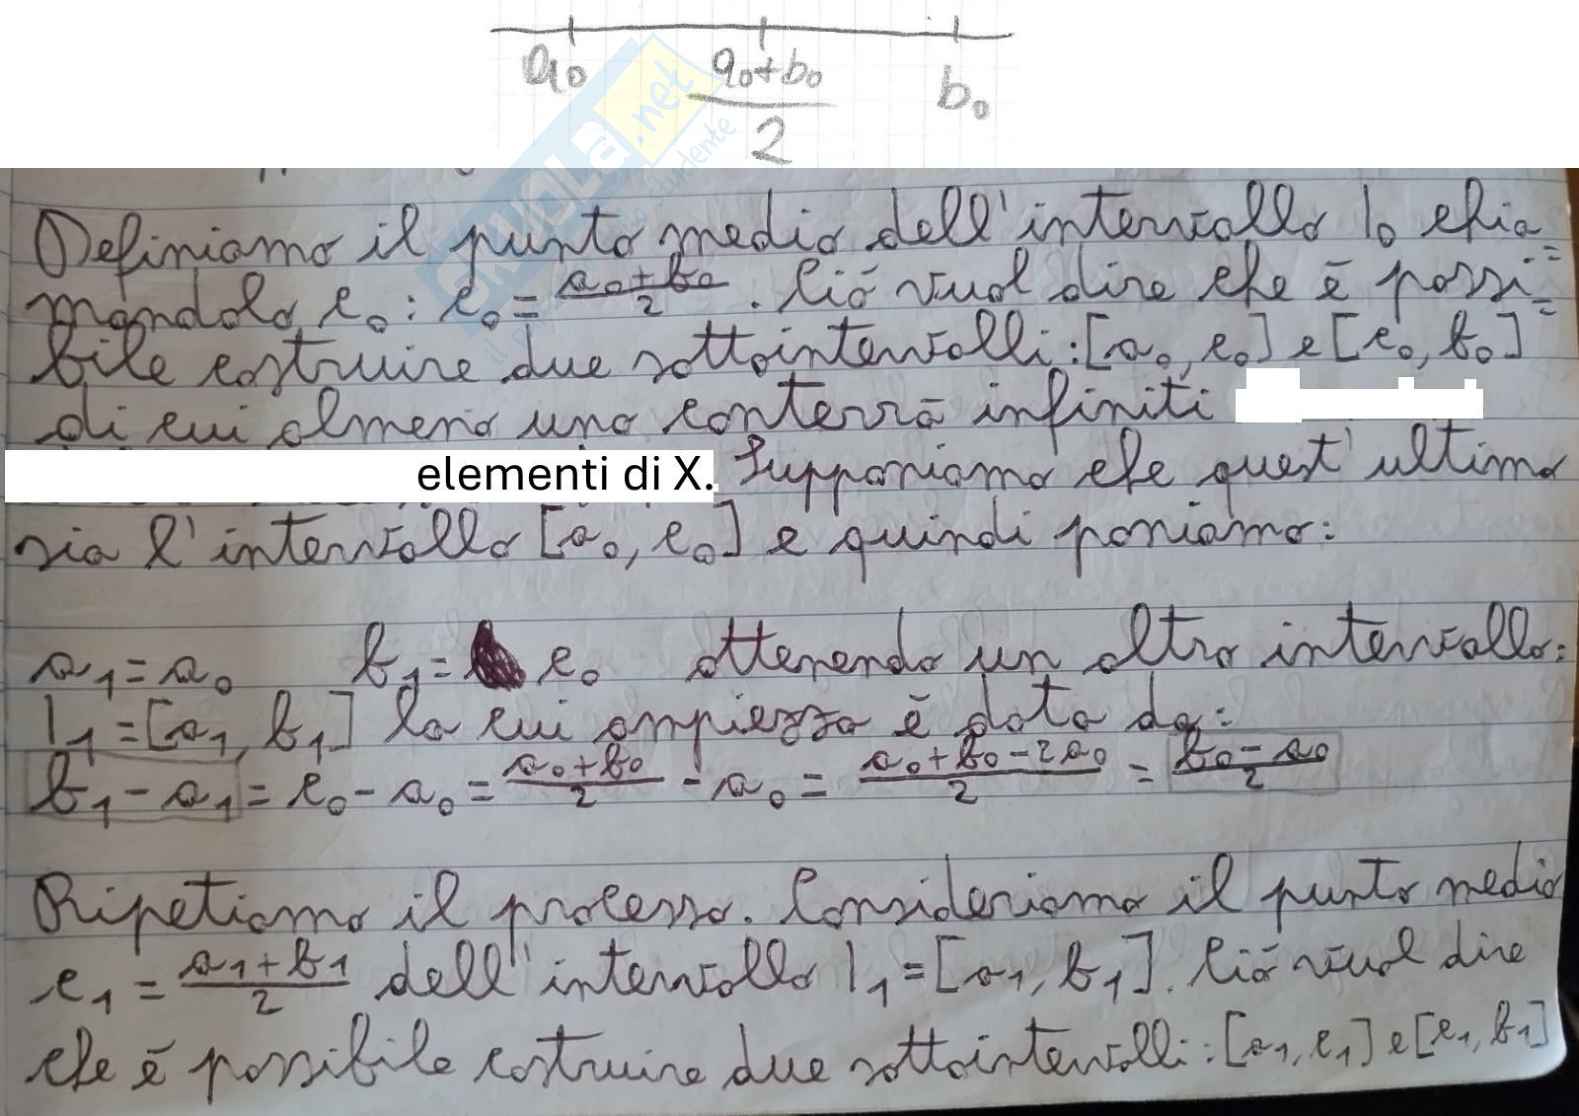 a₀ (a₀+b₀)/2 b₀
SKUOLA.net
Definiamo il punto medio dell'intervallo I₀ chia=
mandolo c₀: c₀ = (a₀+b₀)/2. Ciò vuol dire che è possi=
bile costruire due sottointervalli: [a₀, c₀] e [c₀, b₀]
di cui almeno uno conterrà infiniti
elementi di X. Supponiamo che quest'ultimo
sia l'intervallo [a₀, c₀] e quindi poniamo:
a₁ = a₀ b₁ = c₀ ottenendo un altro intervallo:
I₁ = [a₁, b₁] la cui ampiezza è data da:
b₁ - a₁ = c₀ - a₀ = (a₀+b₀)/2 - a₀ = (a₀+b₀-2a₀)/2 = (b₀-a₀)/2
Ripetiamo il processo. Consideriamo il punto medio
c₁ = (a₁+b₁)/2 dell'intervallo I₁ = [a₁, b₁]. Ciò vuol dire
che è possibile costruire due sottointervalli: [a₁, c₁] e [c₁, b₁]